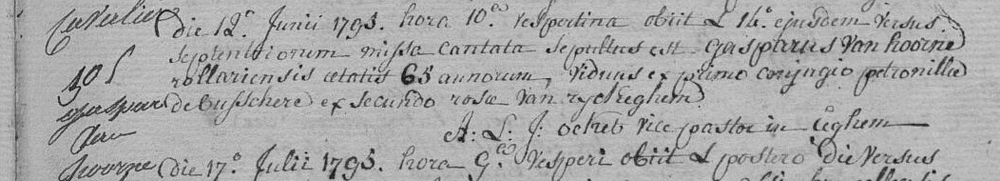 die 12ª Junii 1795. hora 10ª Vespertina obiit & 14º ejusdem versus
septentrionem missa cantata sepultus est Gasparus Van hoorne
rollariensis ætatis 65 annorum, Viduus ex primo conjugio petronillæ
de busschere ex secundo rosæ Van ryckeghem.
A: L: J: ocket Vice pastor in Ceghem
hoorne die 17ª Julii 1795. hora 9ª Vesperi obiit & postero die versus